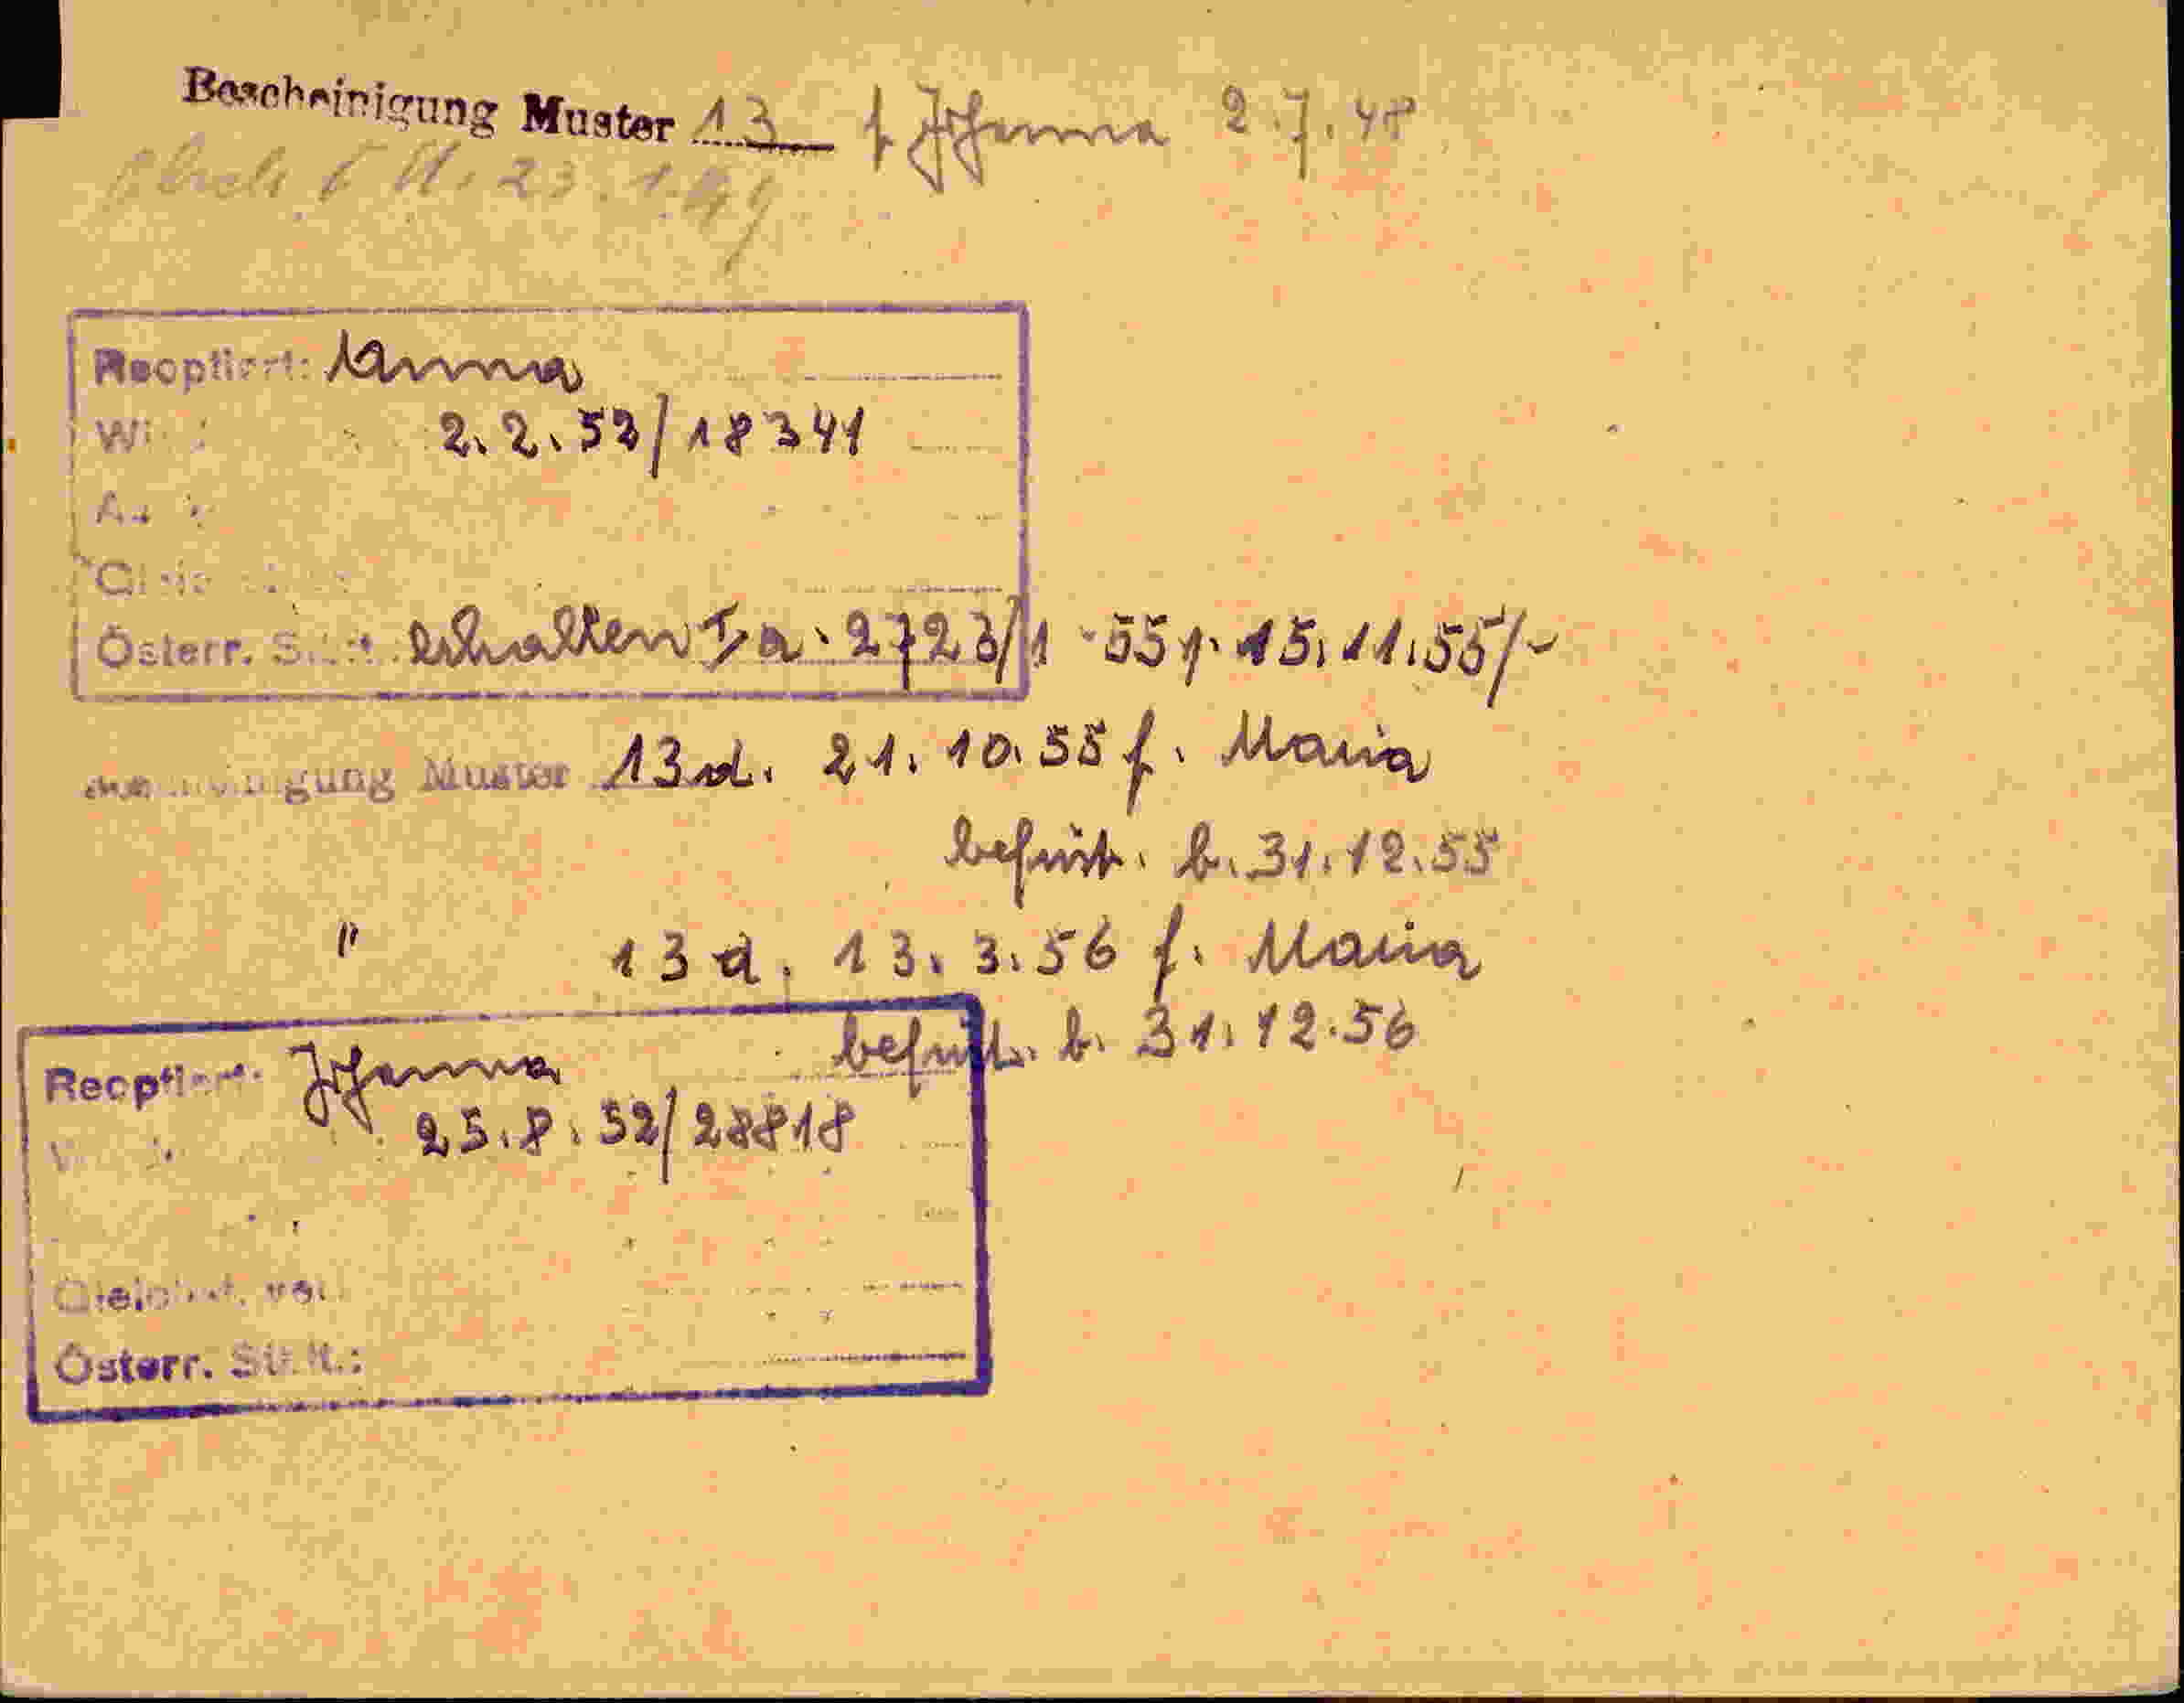 Bescheinigung Muster 13 f Johanna 2.7.48
23.1.49
Reoptiert: Anna
2.2.53/18341
Österr. erhalten Ia. 2723/1-55 v. 15.11.55/-
Muster 13 d. 21.10.55 f. Maria
befrist. b. 31.12.55
" 13 d. 13.3.56 f. Maria
befrist. b. 31.12.56
Reoptiert: Johanna
25.8.52/28818
Österr. St.